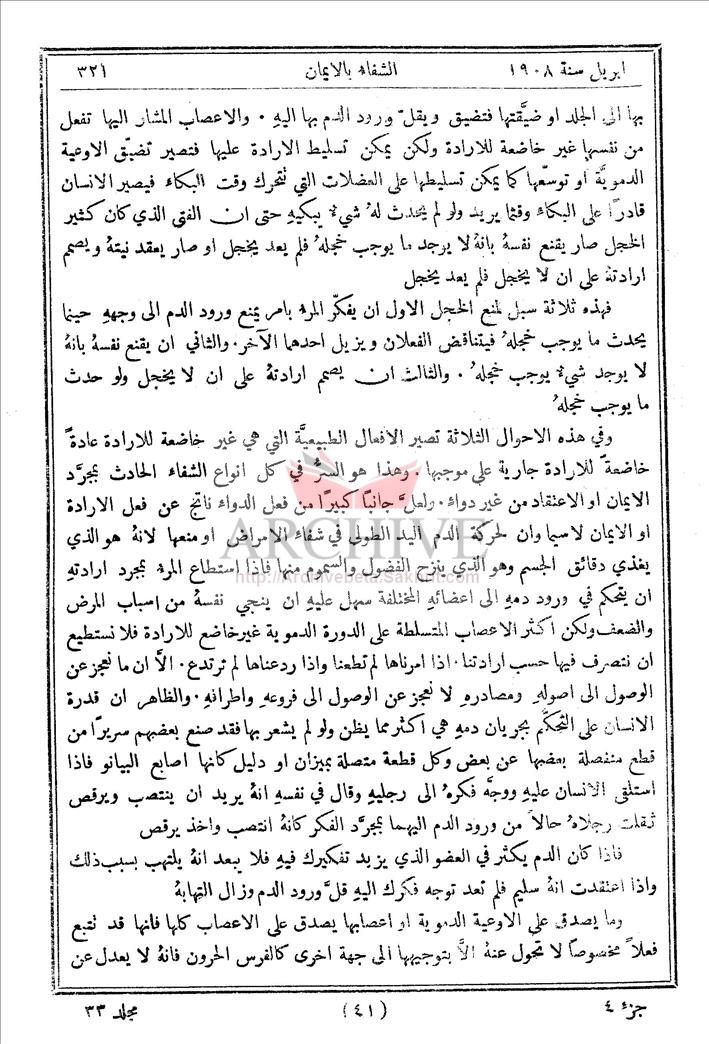 ابريل سنة ١٩٠٨ الشفاء بالايمان ٣٢١
بها الى الجلد او ضيَّقتها فتضيق ويقلّ ورود الدم بها اليهِ . والاعصاب المشار اليها تفعل
من نفسها غير خاضعة للارادة ولكن يمكن تسليط الارادة عليها فتصير تضيّق الاوعية
الدمويَّة او توسّعها كما يمكن تسليطها على العضلات التي تتحرك وقت البكاء فيصير الانسان
قادرًا على البكاء وقتما يريد ولو لم يحدث لهُ شيء يبكيهِ حتى ان الفتى الذي كان كثير
الخجل صار يقنع نفسهُ بانهُ لا يوجد ما يوجب خجلهُ فلم يعد يخجل او صار يعقد نيتهُ ويصمم
ارادتهُ على ان لا يخجل فلم يعد يخجل
فهذه ثلاثة سبل لمنع الخجل الاول ان يفكّر المرء بامر يمنع ورود الدم الى وجههِ حينما
يحدث ما يوجب خجلهُ فيتناقض الفعلان ويزيل احدهما الآخر. والثاني ان يقنع نفسهُ بانهُ
لا يوجد شيء يوجب خجلهُ . والثالث ان يصمم ارادتهُ على ان لا يخجل ولو حدث
ما يوجب خجلهُ
وفي هذه الاحوال الثلاثة تصير الافعال الطبيعيَّة التي هي غير خاضعة للارادة عادةً
خاضعةً للارادة جارية على موجبها . وهذا هو السرُّ في كل انواع الشفاء الحادث بمجرَّد
الايمان او الاعتقاد من غير دواء. ولعلَّ جانبًا كبيرًا من فعل الدواء ناتج عن فعل الارادة
او الايمان لاسيما وان لحركة الدم اليد الطولى في شفاء الامراض او منعها لانهُ هو الذي
يغذي دقائق الجسم وهو الذي ينزح الفضول والسموم منها فاذا استطاع المرء بمجرد ارادتهِ
ان يتحكم في ورود دمهِ الى اعضائهِ المختلفة سهل عليهِ ان ينجي نفسهُ من اسباب المرض
والضعف ولكن اكثر الاعصاب المتسلطة على الدورة الدموية غير خاضع للارادة فلا نستطيع
ان نتصرف فيها حسب ارادتنا . اذا امرناها لم تطعنا واذا ردعناها لم ترتدع . الَّا ان ما نعجز عن
الوصول الى اصولهِ ومصادرهِ لا نعجز عن الوصول الى فروعهِ واطرافهِ . والظاهر ان قدرة
الانسان على التحكّم بجريان دمهِ هي اكثر مما يظن ولو لم يشعر بها فقد صنع بعضهم سريرًا من
قطع منفصلة بعضها عن بعض وكل قطعة متصلة بميزان او دليل كانها اصابع البيانو فاذا
استلقى الانسان عليهِ ووجَّه فكرهُ الى رجليهِ وقال في نفسهِ انهُ يريد ان ينتصب ويرقص
ثقلت رجلاهُ حالاً من ورود الدم اليهما بمجرَّد الفكر كانهُ انتصب واخذ يرقص
فاذا كان الدم يكثر في العضو الذي يزيد تفكيرك فيهِ فلا يبعد انهُ يلتهب بسبب ذلك
واذا اعتقدت انهُ سليم فلم تعد توجه فكرك اليهِ قلَّ ورود الدم وزال التهابهُ
وما يصدق على الاوعية الدموية او اعصابها يصدق على الاعصاب كلها فانها قد تتبع
فعلاً مخصوصاً لا تحول عنهُ الَّا بتوجيهها الى جهة اخرى كالفرس الحرون فانهُ لا يعدل عن
جزء ٤ (٤١) مجلد ٣٣
ARCHIVE
http://Archivebeta.Sakhrit.com